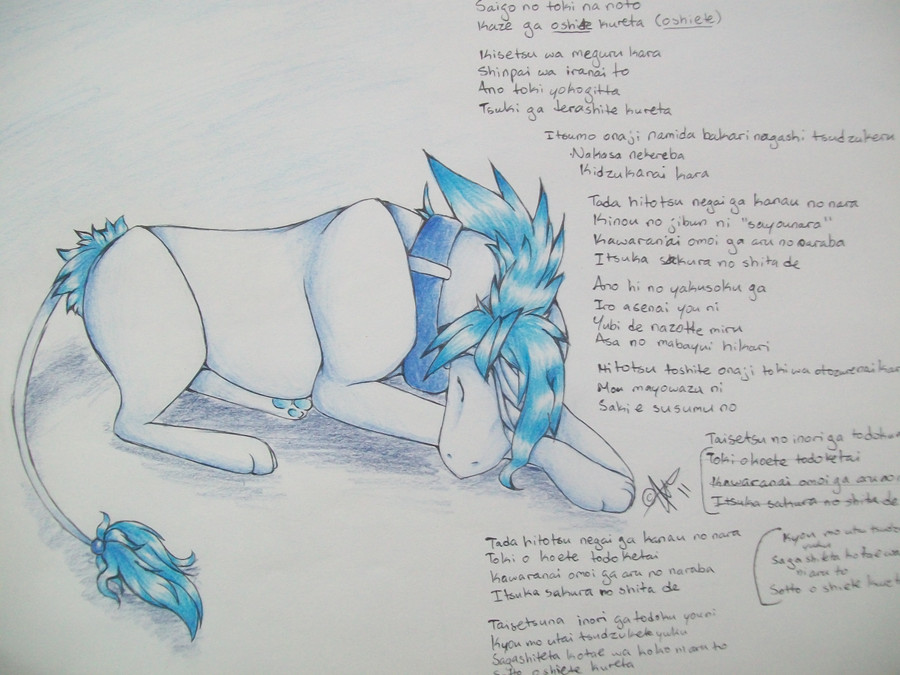 Saigo no toki na noto
Kaze ga oshite kureta (oshiete)
Kisetsu wa meguru kara
Shinpai wa iranai to
Ano toki yokogitta
Tsuki ga terashite kureta
Itsumo onaji namida bakari nagashi tsudzukeru
Nakasa nekereba
Kidzukanai kara
Tada hitotsu negai ga kanau no nara
Kinou no jibun ni "sayounara"
Kawaranai omoi ga aru no naraba
Itsuka sakura no shita de
Ano hi no yakusoku ga
Iro asenai you ni
Yubi de nazotte miru
Asa no mabayui hikari
Hitotsu toshite onaji toki wa otozurenai kar
Mou mayowazu ni
Saki e susumu no
Taisetsu no inori ga todoku
Toki o koete todoketai
Kawaranai omoi ga aru no
Itsuka sakura no shita de
© 11
Kyou mo utai
yuku
Sagashiteta kotae wa
ni aru to
Sotto oshiete kuret
Tada hitotsu negai ga kanau no nara
Toki o koete todoketai
Kawaranai omoi ga aru no naraba
Itsuka sakura no shita de
Taisetsuna inori ga todoku you ni
Kyou mo utai tsudzukete yuku
Sagashiteta kotae wa koko ni aru to
Sotto oshiete kureta